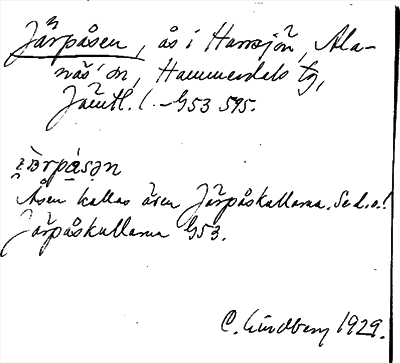 Järpåsen, ås i Harrsjön, Ala-
näs' sn, Hammerdals tg,
Jämtl. l. - G53 595.
Åsen kallas även Järpåskullarna. Se d.o!
Järpåskullarna G53.
C. Lindberg 1929.